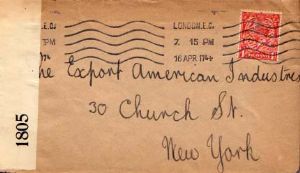 LONDON.E.C.
7. 15 PM
16 APR 17
The Export American Industries
30 Church St.
New York
1805